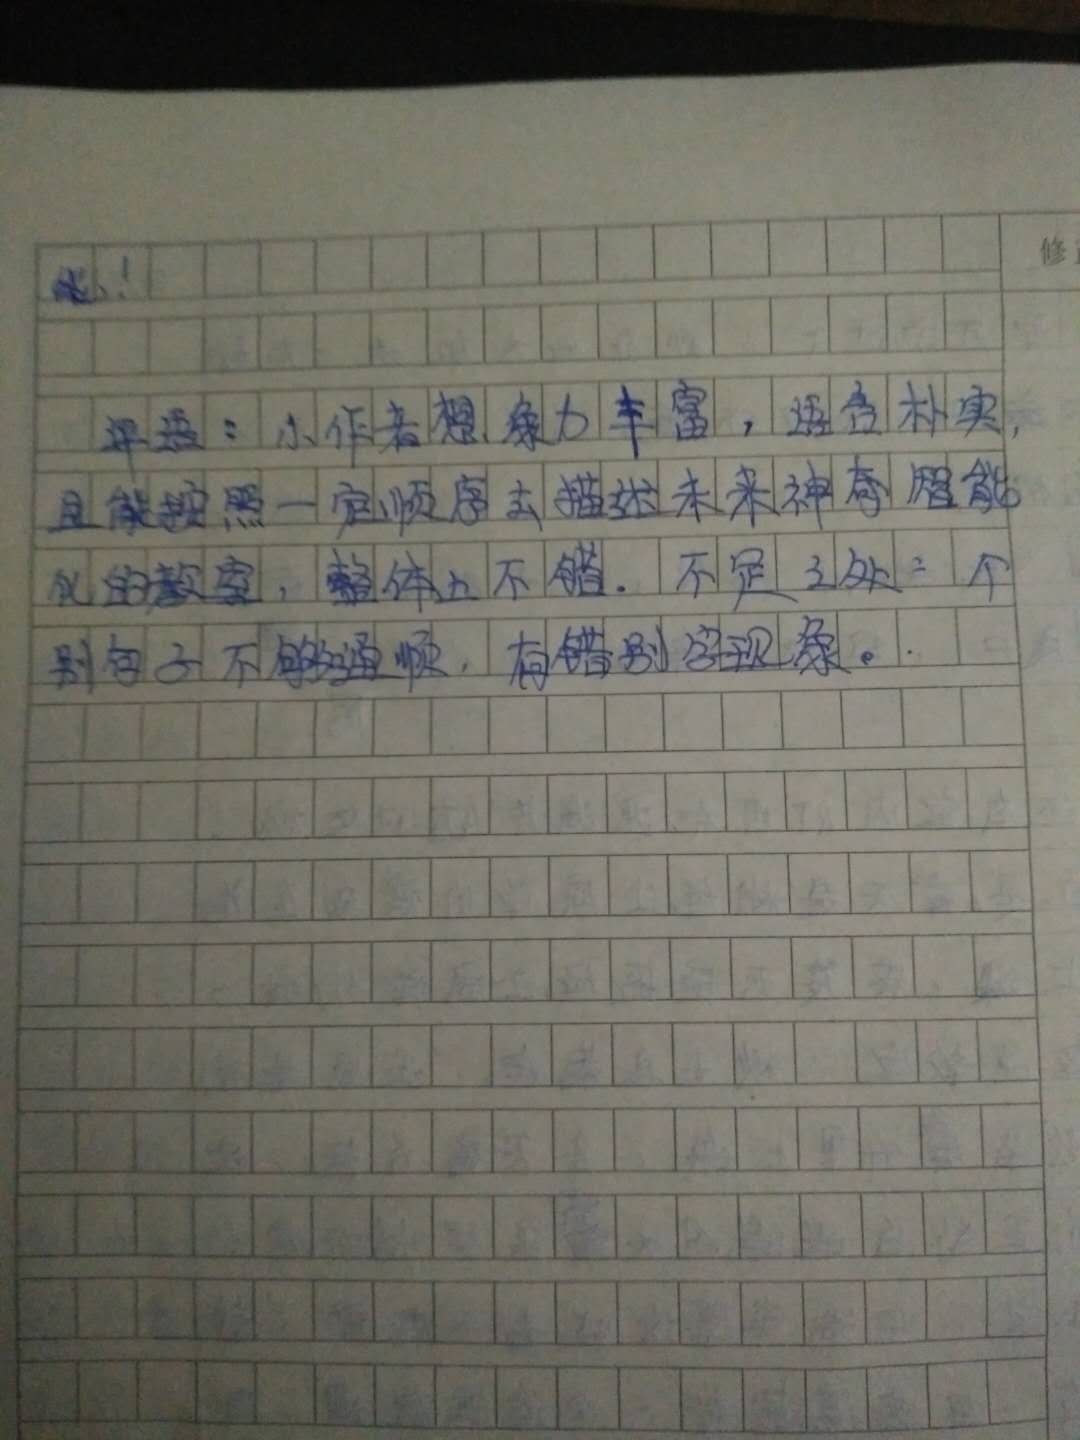 修
！
评语：小作者想象力丰富，语言朴实，
且能按照一定顺序去描述未来神奇智能
化的教室，整体上不错．不足之处：个
别句子不够通顺，有错别字现象。